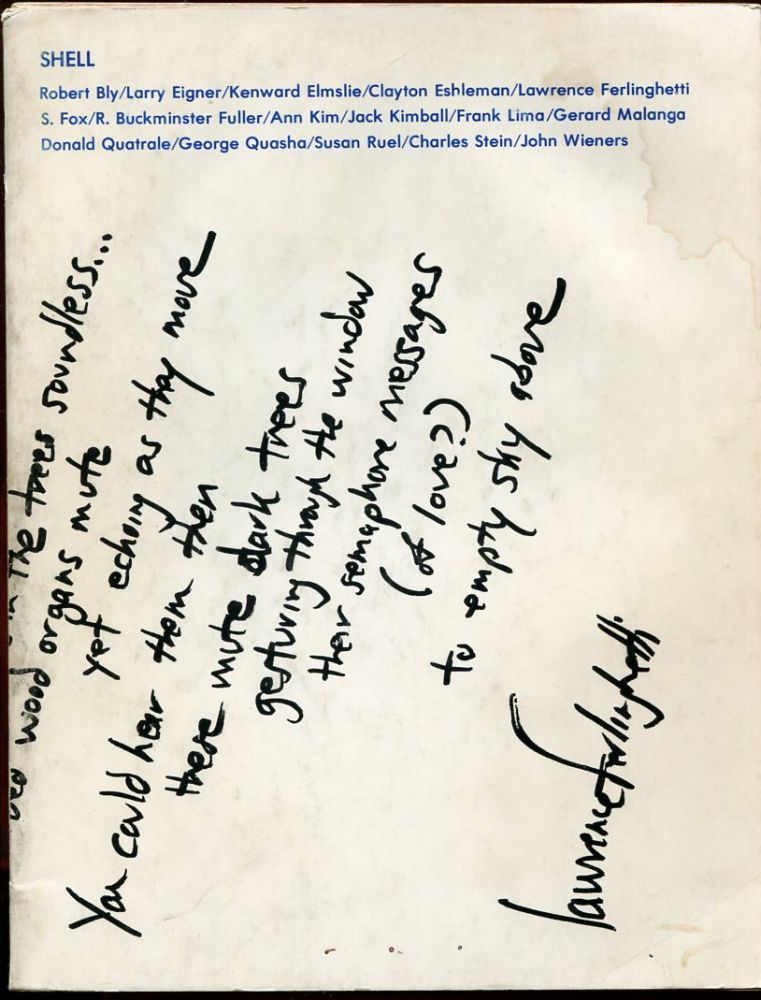 SHELL
Robert Bly/Larry Eigner/Kenward Elmslie/Clayton Eshleman/Lawrence Ferlinghetti
S. Fox/R. Buckminster Fuller/Ann Kim/Jack Kimball/Frank Lima/Gerard Malanga
Donald Quatrale/George Quasha/Susan Ruel/Charles Stein/John Wieners
in the trees soundless...
wood organs mute
yet echoing as they move
You could hear them then
these mute dark trees
gesturing through the window
their semaphore messages
(of love?)
to empty sky above
Lawrence Ferlinghetti